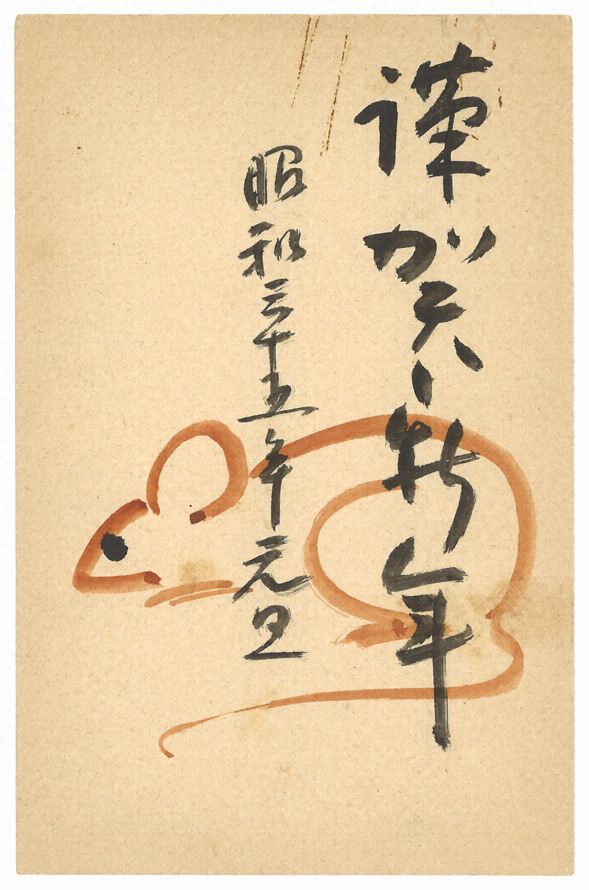 謹賀新年
昭和三十五年元旦